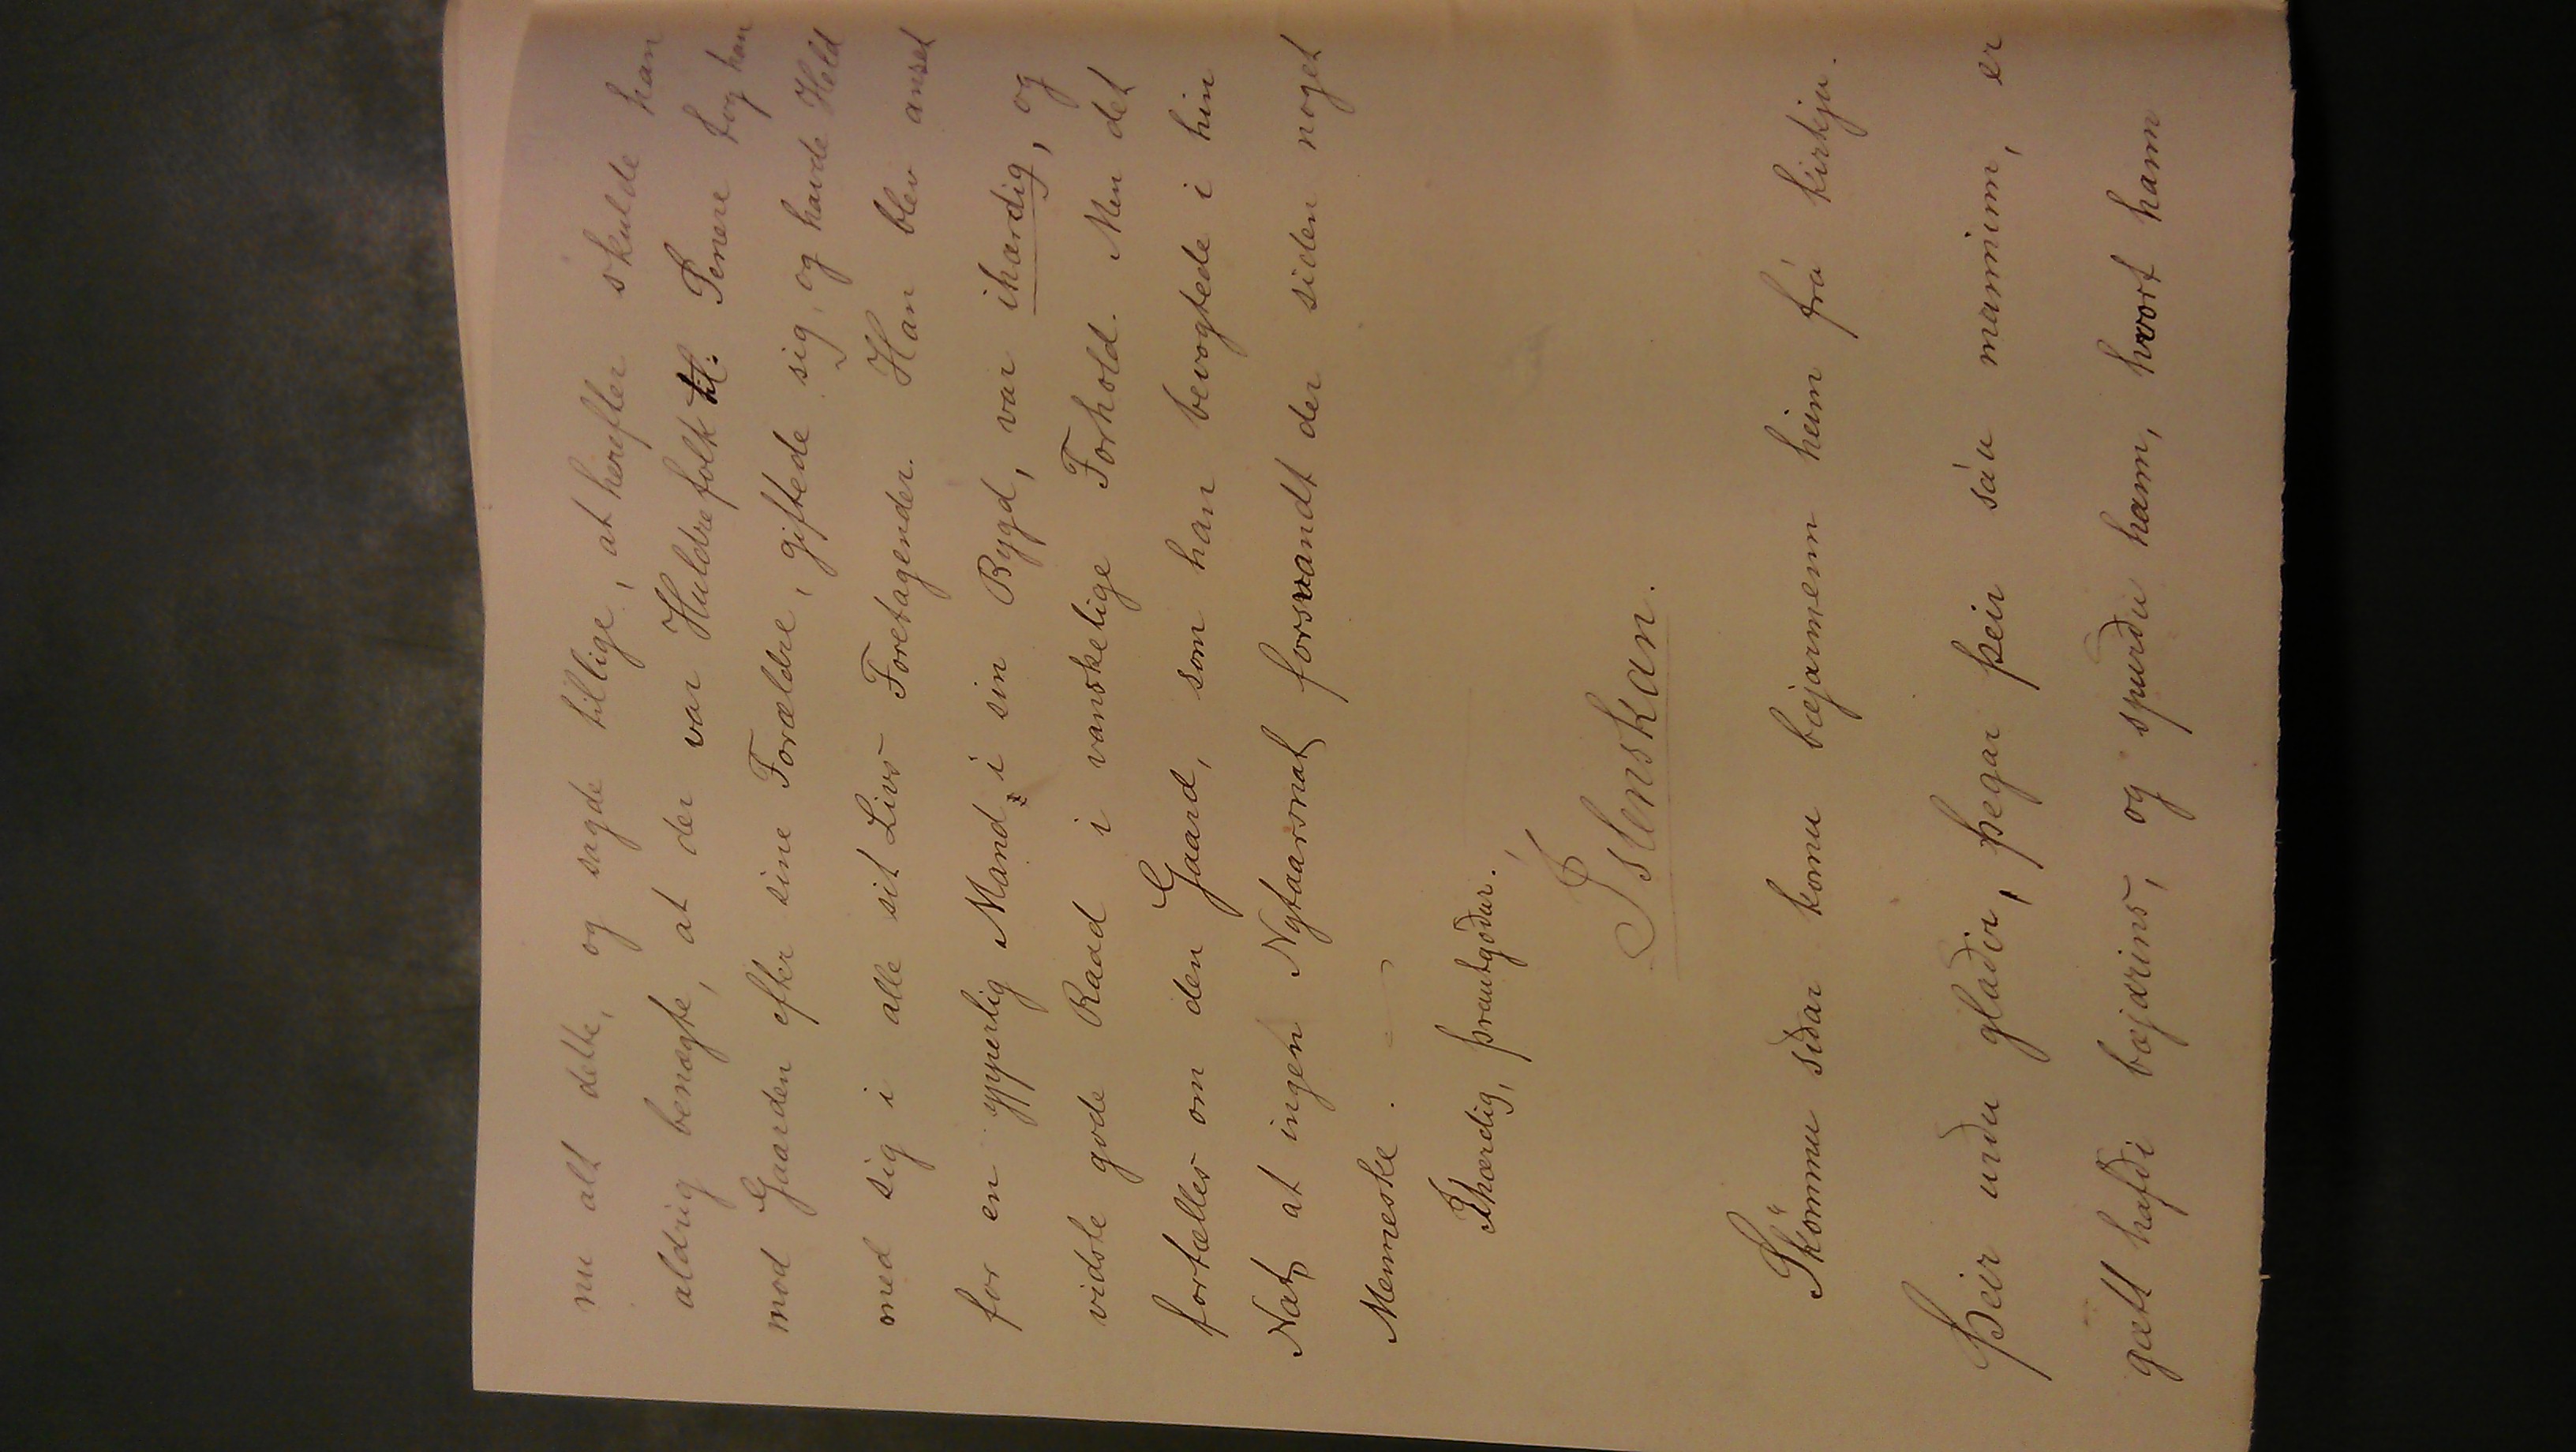 nu alt dette, og sagde tillige, at herefter skulde han
aldrig benægte, at der var Huldrefolk til. Senere tog han
mod Gaarden efter sine Forældre, giftede sig, og havde Held
med sig i alle sit Livs Foretagender. Han blev anset
for en ypperlig Mand i sin Bygd, var ihærdig, og
vidste gode Raad i vanskelige Forhold. Men det
fortælles om den Gaard, som han bevogtede i hin
Nat, at ingen Nytaarsnat forsvandt der siden noget
Menneske.
Ihærdig, þrautgóður.
Íslenskan.
Skömmu síðar komu bæjarmenn heim frá kirkju.
Þeir urðu glaðir, þegar þeir sáu manninn, er
gætt hafði bæjarins, og spurðu hann, hvort hann